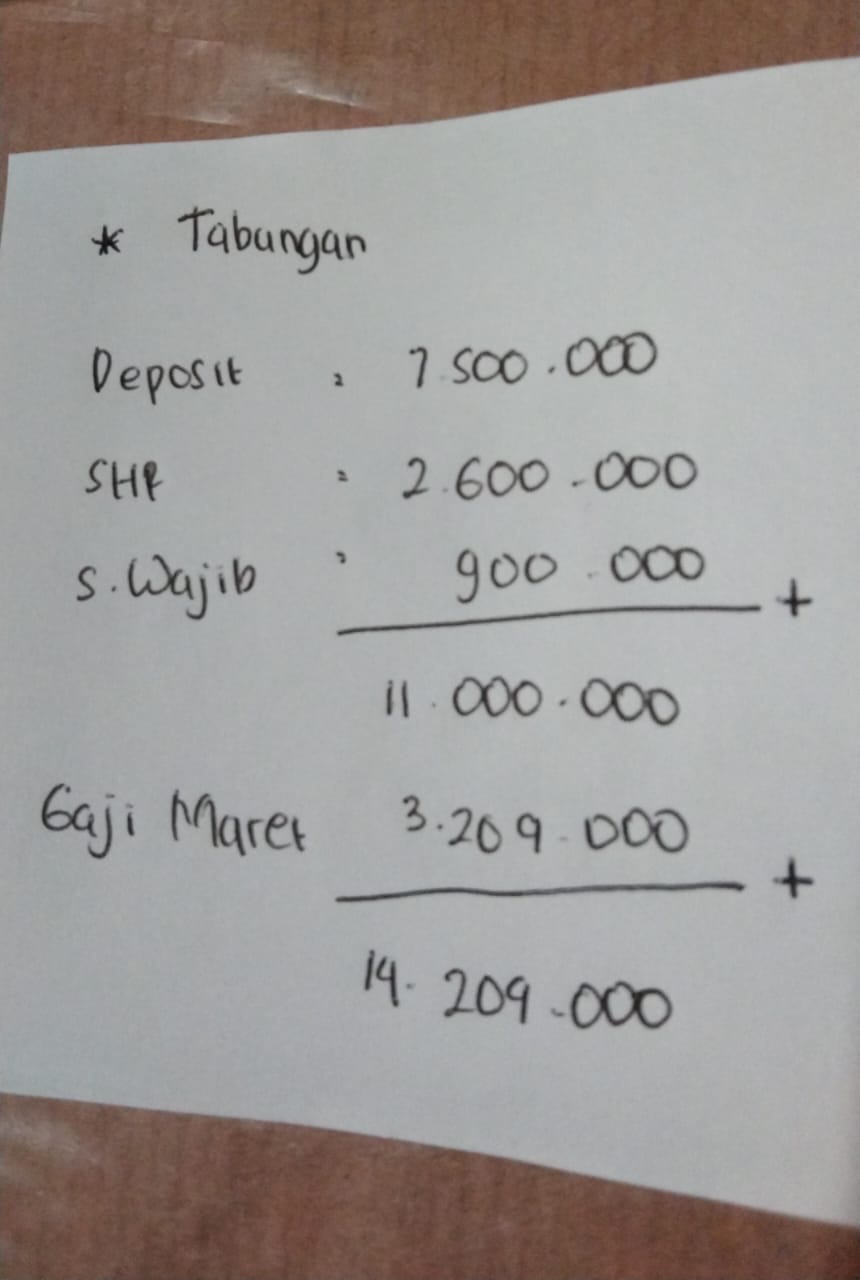 * Tabungan
Deposit = 7.500.000
SHR = 2.600.000
S. Wajib = 900.000 +
11.000.000
Gaji Maret 3.209.000 +
14.209.000